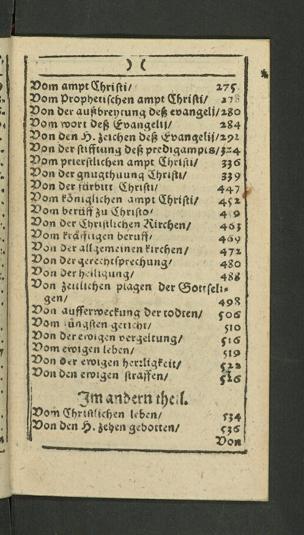 )(
Vom ampt Christi/ 275
Vom Prophetischen ampt Christi/ 278
Von der außbreytung deß evangeli/ 280
Vom wort deß Evangelij/ 284
Von den H. zeichen deß Evangelij/ 292
Von der stifftung deß predigampts/ 324
Vom priesterlichen ampt Christi/ 336
Von der gnugthuung Christi/ 339
Von der fürbitt Christi/ 447
Vom königlichen ampt Christi/ 452
Vom beruff zu Christo/
Von der Christlichen Kirchen/ 463
Vom kräfftigen beruff/ 469
Von der allgemeinen kirchen/ 472
Von der gerechtsprechung/ 480
Von der heiligung/ 488
Von zeitlichen plagen der Gottseli-
gen/ 498
Von aufferweckung der todten/ 506
Vom jüngsten gericht/ 510
Von der ewigen vergeltung/ 516
Vom ewigen leben/ 519
Von der ewigen herrligkeit/ 522
Von den ewigen straffen/ 526
Im andern theil.
Vom Christlichen leben/ 534
Von den H. zehen gebotten/ 536
Von